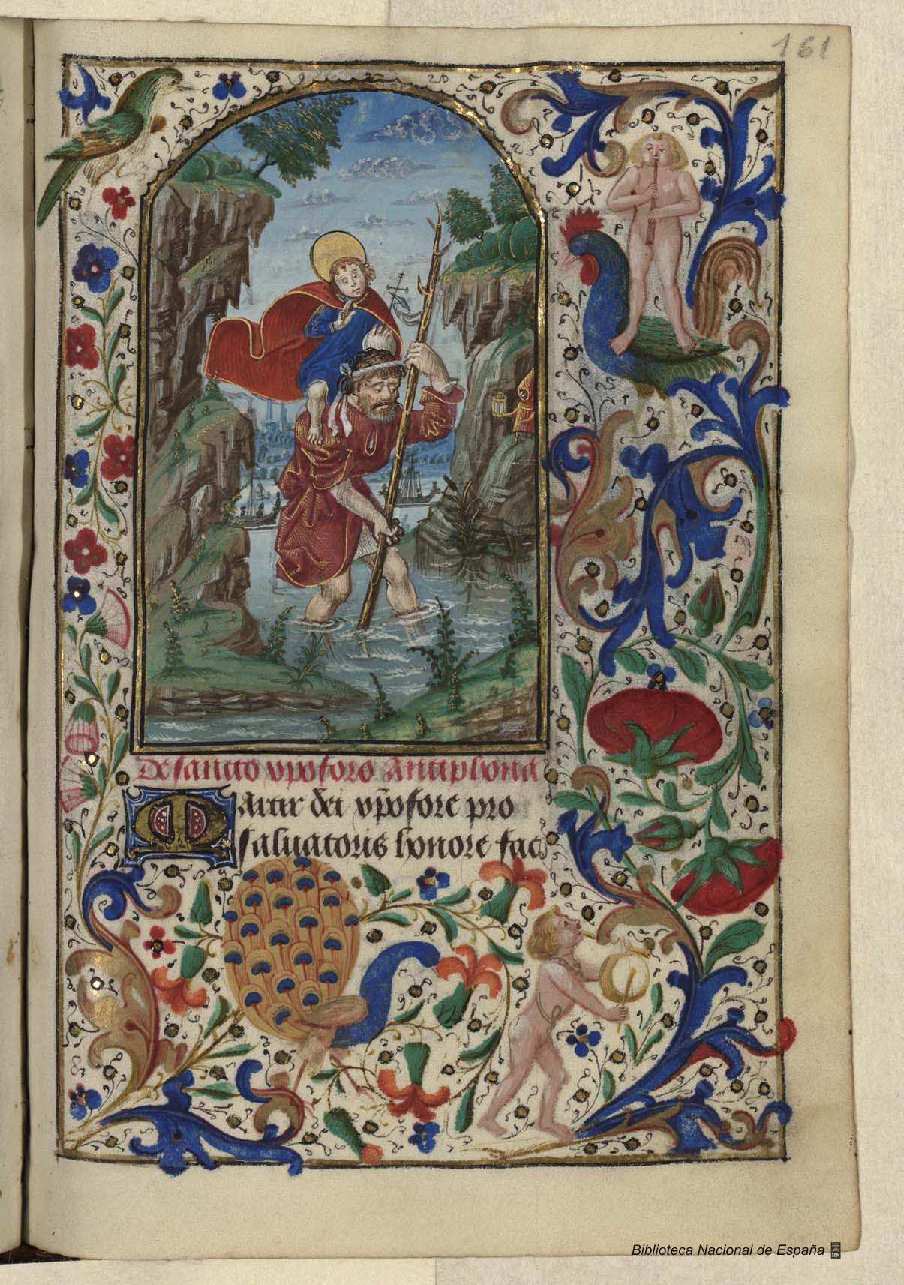 161
De sancto xpoforo Antiphona
Martir dei xp̄ofore pro
saluatoris honore fac
Biblioteca Nacional de España